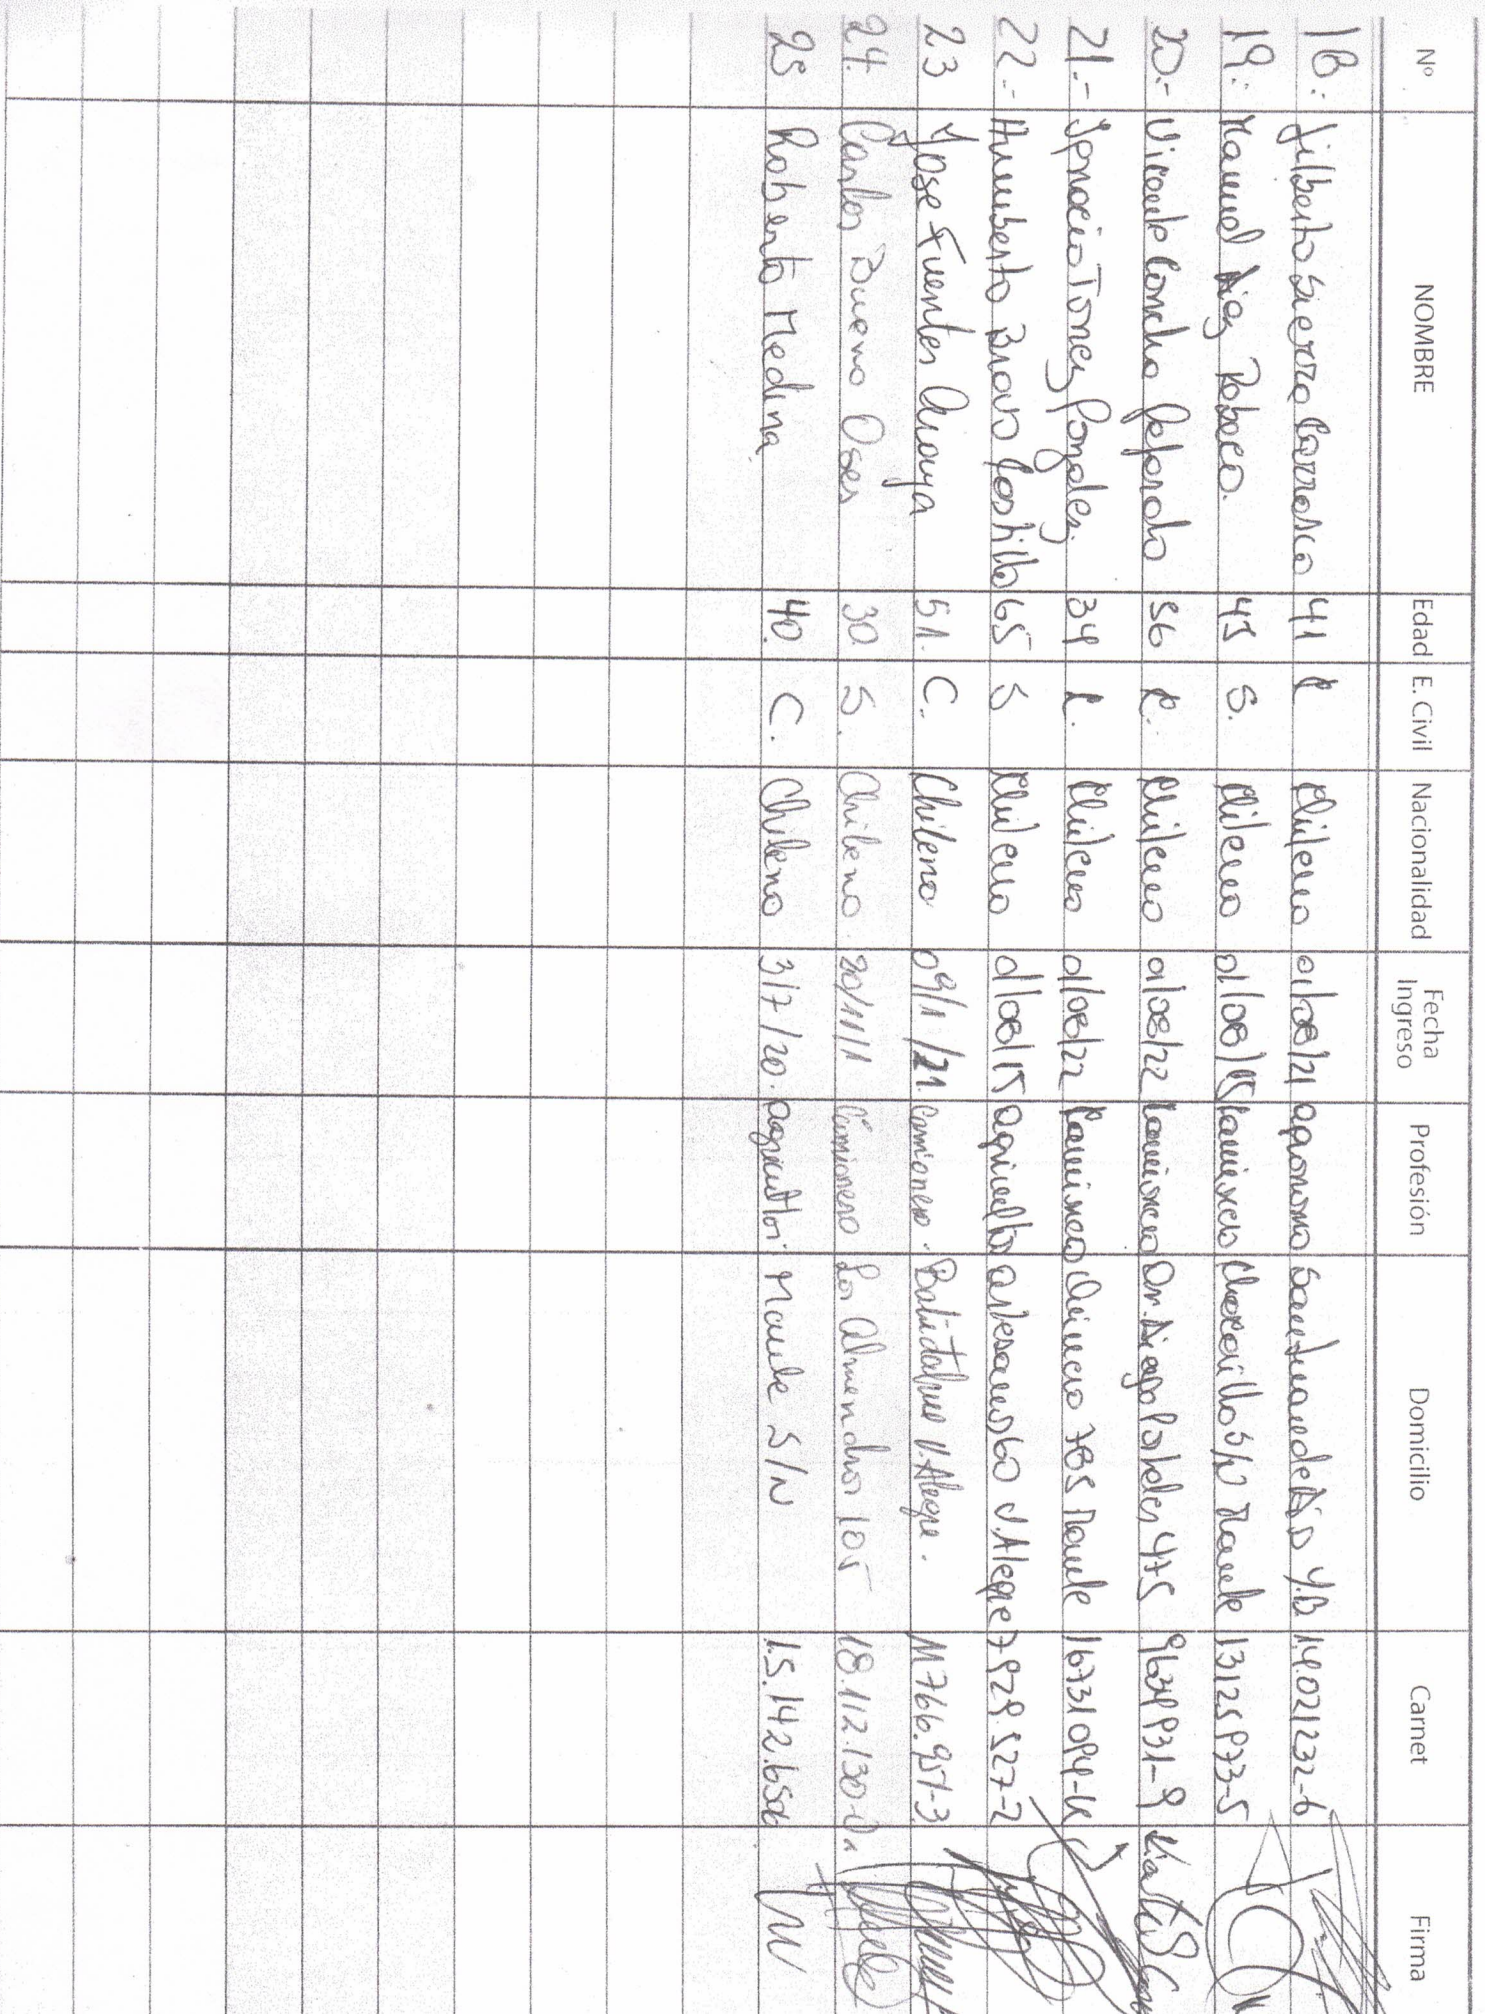 Nº NOMBRE Edad E. Civil Nacionalidad Fecha Ingreso Profesión Domicilio Carnet Firma
18.- Jilberto Sierra Carrasco 41 C Chileno 01/08/21 agronomo San Juan de Dio V.B 14.021232-6
19.- Manuel Diaz 45 S. Chileno 01/08/15 Camionero S/N Maule 13125973-5
20.- Vicente Concha 56 C. Chileno 01/08/22 Camionero Dr. Diego Portales 475 9634931-9
21.- Ignacio Torres Gonzalez. 34 C. Chileno 01/08/22 Camionero 785 Maule 16731094-K
22.- Humberto Bravo Castillo 65 S Chileno 01/08/15 agricultor artesanos 60 V. Alegre 7929.527-2
23 Jose Fuentes Araya 51. C. Chileno 09/1/21. Camionero. V. Alegre. 11766.951-3
24. Carlos Bueno Oses 30 S. Chileno 20/11/1 Camionero Los Almendros 105 18.112.130-
25 Roberto Medina 40. C. Chileno 3/7/20. agricultor. Maule S/N 15.142.650